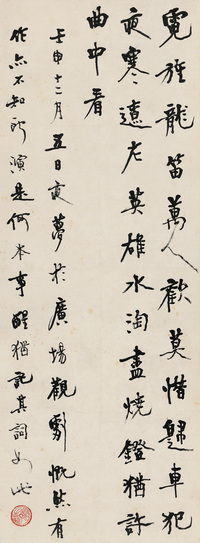 霓旌龍笛萬人歡莫惜歸車犯
夜寒遠左英雄水淘盡燒鐙猶許
曲中看
壬申十二月五日夜夢於廣場觀劇慨然有
作亦不知所演是何本事醒猶記其詞如此